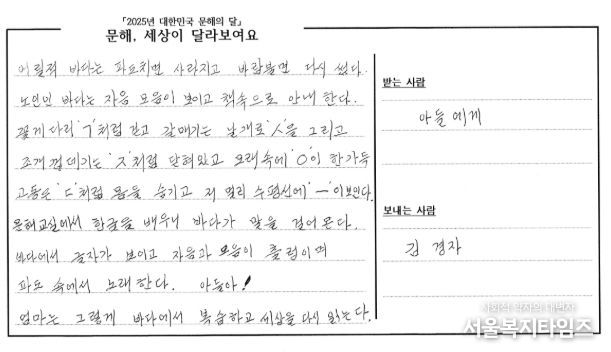 「2025년 대한민국 문해의 달」
문해, 세상이 달라보여요
어릴적 바다는 파도치면 사라지고 바람불면 다시 썼다.
노인인 바다는 자음 모음이 보이고 책속으로 안내 한다.
꽃게다리 'ㄱ'처럼 걷고 갈매기는 날개로 'ㅅ'을 그리고
조개껍데기는 'ㅈ'처럼 닫혀있고 모래속에 'ㅇ'이 한가득
고동은 'ㄷ'처럼 몸을 숨기고 저 멀리 수평선에 'ㅡ'이보인다.
문해교실에서 한글을 배우니 바다가 말을 걸어 온다.
바다에서 글자가 보이고 자음과 모음이 출렁이며
파도 속에서 노래한다. 아들아!
엄마는 그렇게 바다에서 복습하고 세상을 다시 읽는다.
받는 사람
아들에게
보내는 사람
김 경자
사회적 약자의 대변자
서울복지타임즈